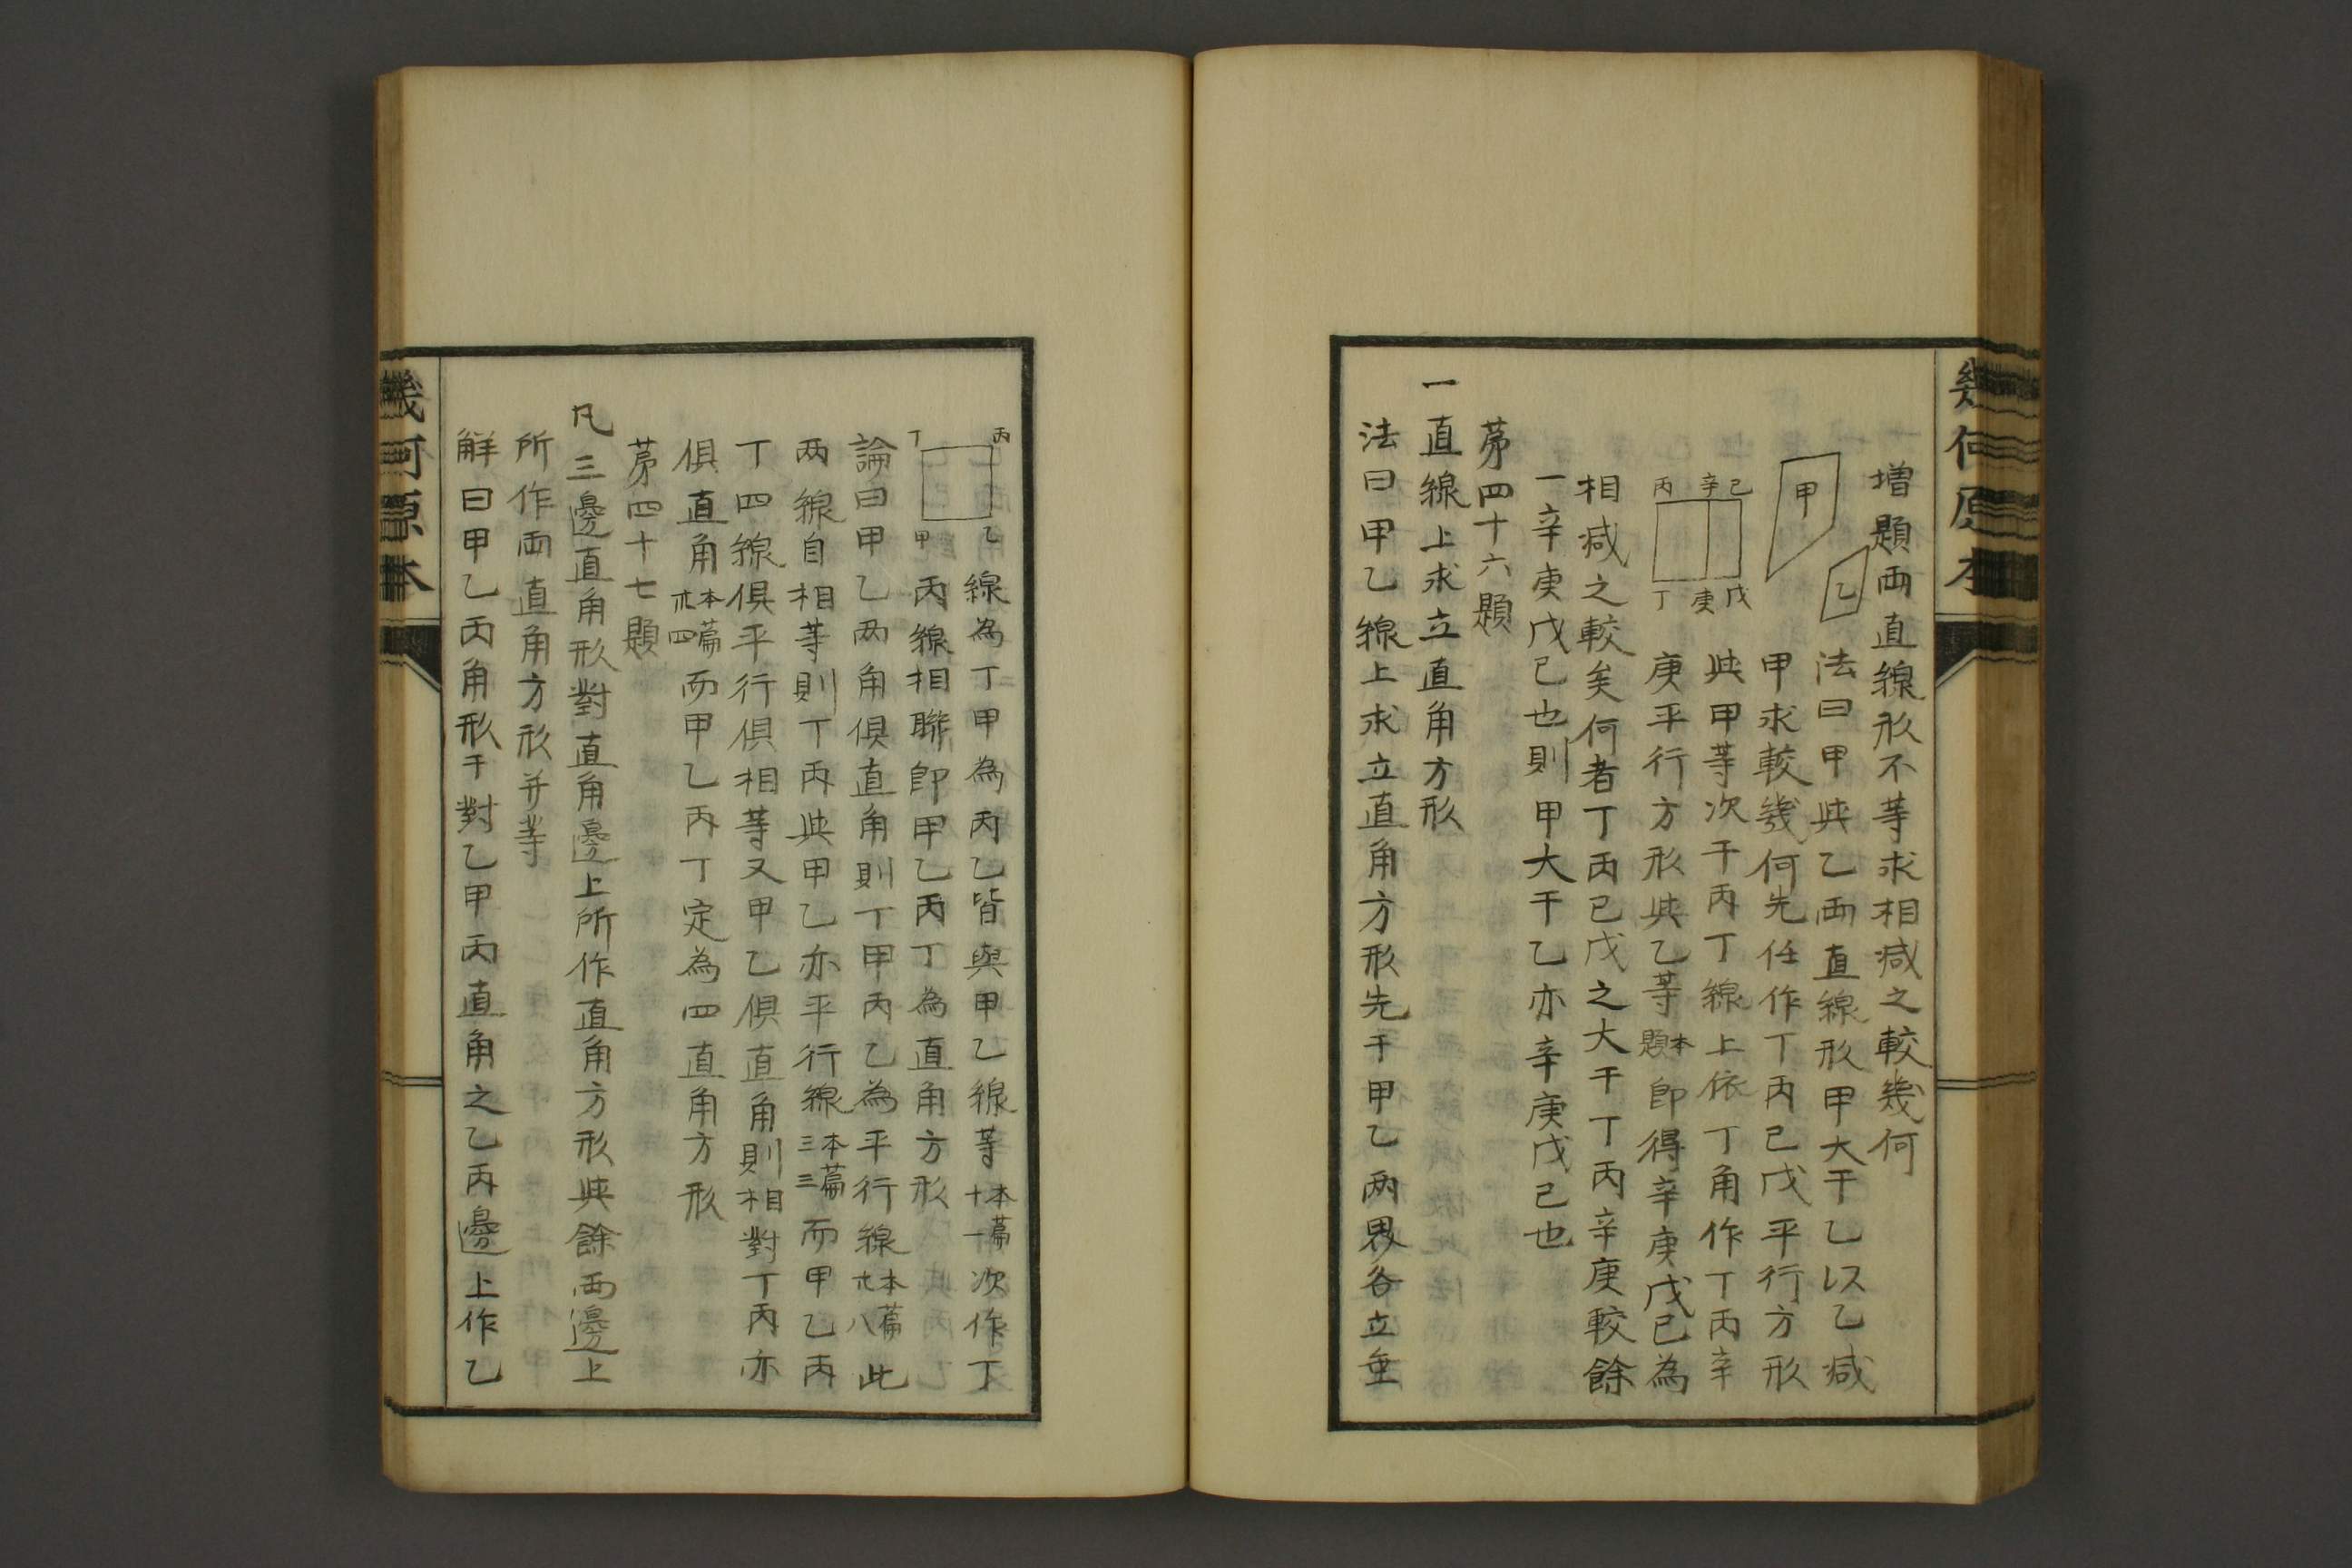 幾何原本
增題兩直線形不等求相减之較幾何
甲
乙
法曰甲與乙兩直線形甲大于乙以乙减
甲求較幾何先任作丁丙己戊平行方形
與甲等次于丙丁線上依丁角作丁丙辛
丙 辛 己
丁 庚 戊
庚平行方形與乙等本題即得辛庚戊己為
相减之較矣何者丁丙己戊之大于丁丙辛庚較餘
一辛庚戊己也則甲大于乙亦辛庚戊己也
苐四十六題
一直線上求立直角方形
法曰甲乙線上求立直角方形先于甲乙兩界各立垂
丙 乙
丁 甲
線為丁甲為丙乙皆與甲乙線等本篇十一次作丁
丙線相聯即甲乙丙丁為直角方形
論曰甲乙兩角俱直角則丁甲丙乙為平行線本篇廿八此
兩線自相等則丁丙與甲乙亦平行線本篇三三而甲乙丙
丁四線俱平行俱相等又甲乙俱直角則相對丁丙亦
俱直角本篇卅四而甲乙丙丁定為四直角方形
苐四十七題
凡三邊直角形對直角邊上所作直角方形與餘兩邊上
所作兩直角方形并等
解曰甲乙丙角形于對乙甲丙直角之乙丙邊上作乙
幾何原本